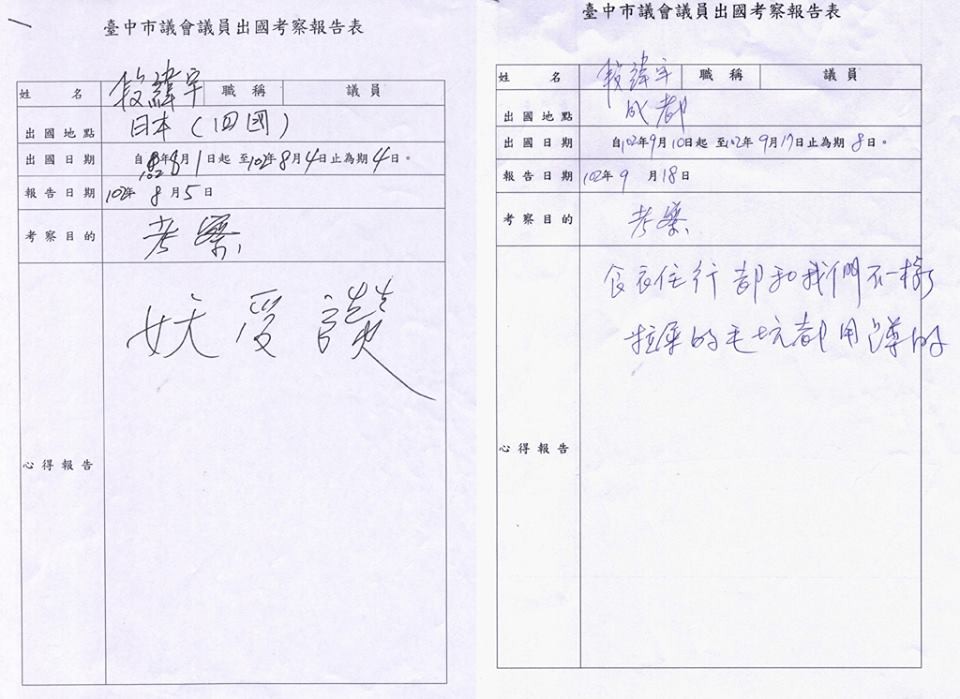 臺中市議會議員出國考察報告表
姓名 段緯宇 職稱 議員
出國地點 日本(四國)
出國日期 自102年8月1日起 至102年8月4日止為期4日。
報告日期 102年8月5日
考察目的 考察
心得報告
妖受讚
臺中市議會議員出國考察報告表
姓名 段緯宇 職稱 議員
出國地點 成都
出國日期 自102年9月10日起 至102年9月17日止為期8日。
報告日期 102年9月18日
考察目的 考察
食衣住行都和我們不一樣
拉屎的毛坑都用蹲的
心得報告